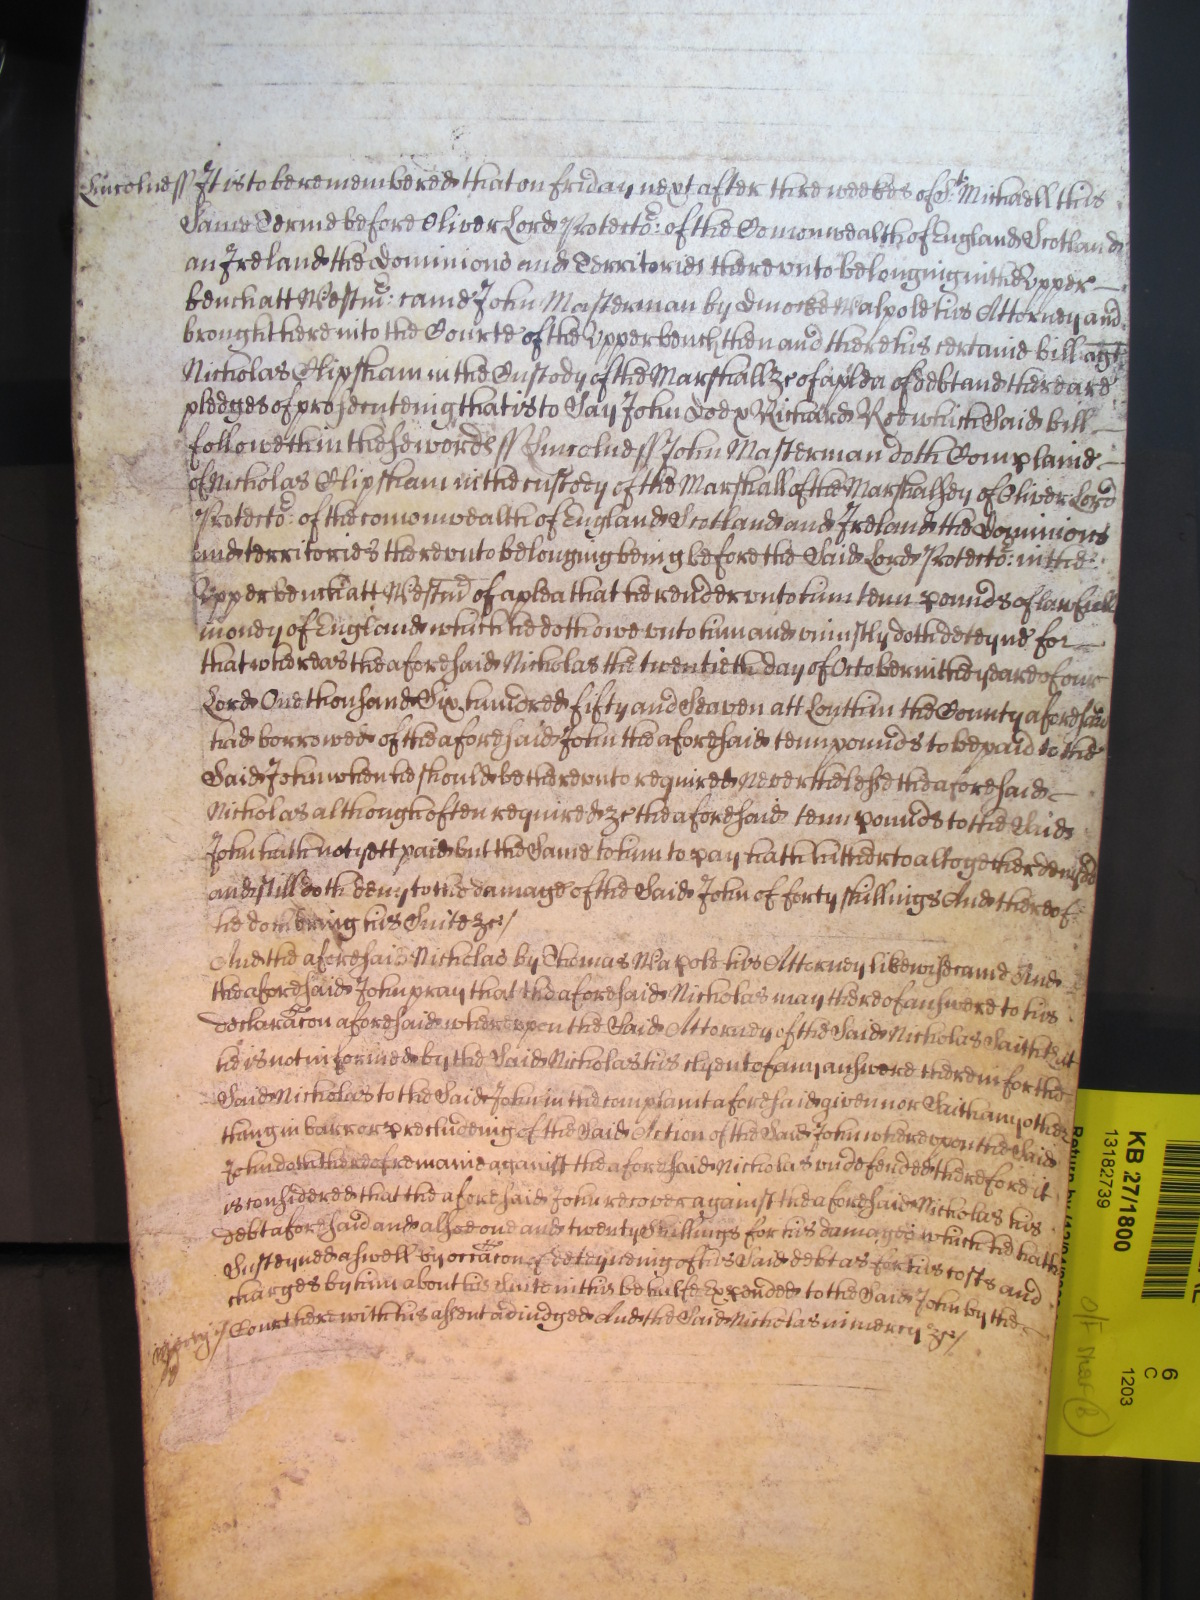 Lincolne ss It is to be remembred that on friday next after three weekes of St Michaell this
Same Terme before Oliver Lord Protector: of the Comonwealth of England Scotland
an Ireland the dominions and Territories thereunto belonging in the Upper
bench att Westmr: came John Masterman by Walpole his Attorney and
brought here into the Courte of the Upper bench then and there his certaine bill agt
Nicholas Clipsham in the Custody of the Marshall &c of a plea of debt and there are
pledges of prosecuteing that is to Say John Doe & Richard Roe which Said bill
followeth in these words ss Lincolne ss John Masterman doth Complaine
of Nicholas Clipsham in the custody of the Marshall of the Marshalsey of Oliver Lord
Protector: of the comonwealth of England Scotland and Ireland the Dominions
and territories thereunto belonging being before the Said Lord Protector: in the
Upper bench att Westmr of a plea that he render unto him tenn pounds of lawfull
money of England which he doth owe unto him and uniustly doth deteyne for
that whereas the aforesaid Nicholas the twentieth day of October in the yeare of our
Lord One thousand Six hundred fifty and Seaven att Louth in the County aforesaid
had borrowed of the aforesaid John the aforesaid tenn pounds to be paid to the
Said John when he should be thereunto required Neverthelesse the aforesaid
Nicholas although often required &c the aforesaid tenn pounds to the Said
John hath not yett paid but the Same to him to pay hath hitherto altogether denyed
and still doth deny to the damage of the Said John of forty shillings And thereof
he doth bring his Suite &c/
And the aforesaid Nicholas by Thomas Walpole his Attorney likewise came And
the aforesaid John pray that the aforesaid Nicholas may thereof answere to his
declaracon aforesaid whereupon the Said Attorney of the Said Nicholas Saith that
he is not informed by the Said Nicholas his clyent of any answere therein for the
Said Nicholas to the Said John in the complaint aforesaid given nor Saith any other
thing in barr or precludeing of the Said Action of the Said John whereupon the Said
John doth thereof remaine against the aforesaid Nicholas undefended therefore it
is considered that the aforesaid John recover against the aforesaid Nicholas his
debt aforesaid and alsoe one and twenty Shillings for his damages which he hath
Susteyned aswell by occacon of deteyneing of his Said debt as for his costs and
charges by him about his Suite in this behalfe expended to the Said John by the
mercy/ Court here with his assent adiudged And the Said Nicholas in mercy &c/
KB 27/1800
13182739
6
C
1203